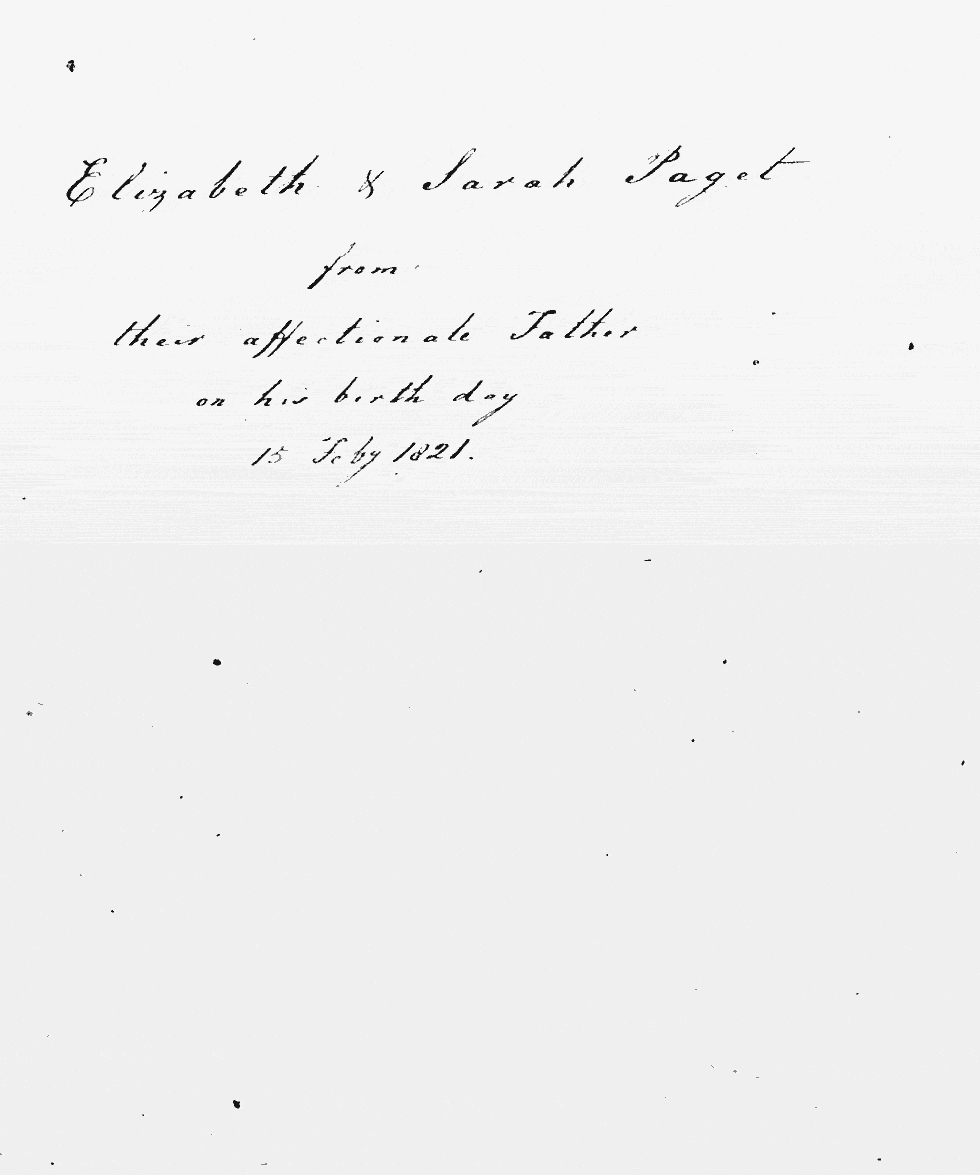 Elizabeth & Sarah Paget
from
their affectionate Father
on his birth day
15 Feby 1821.